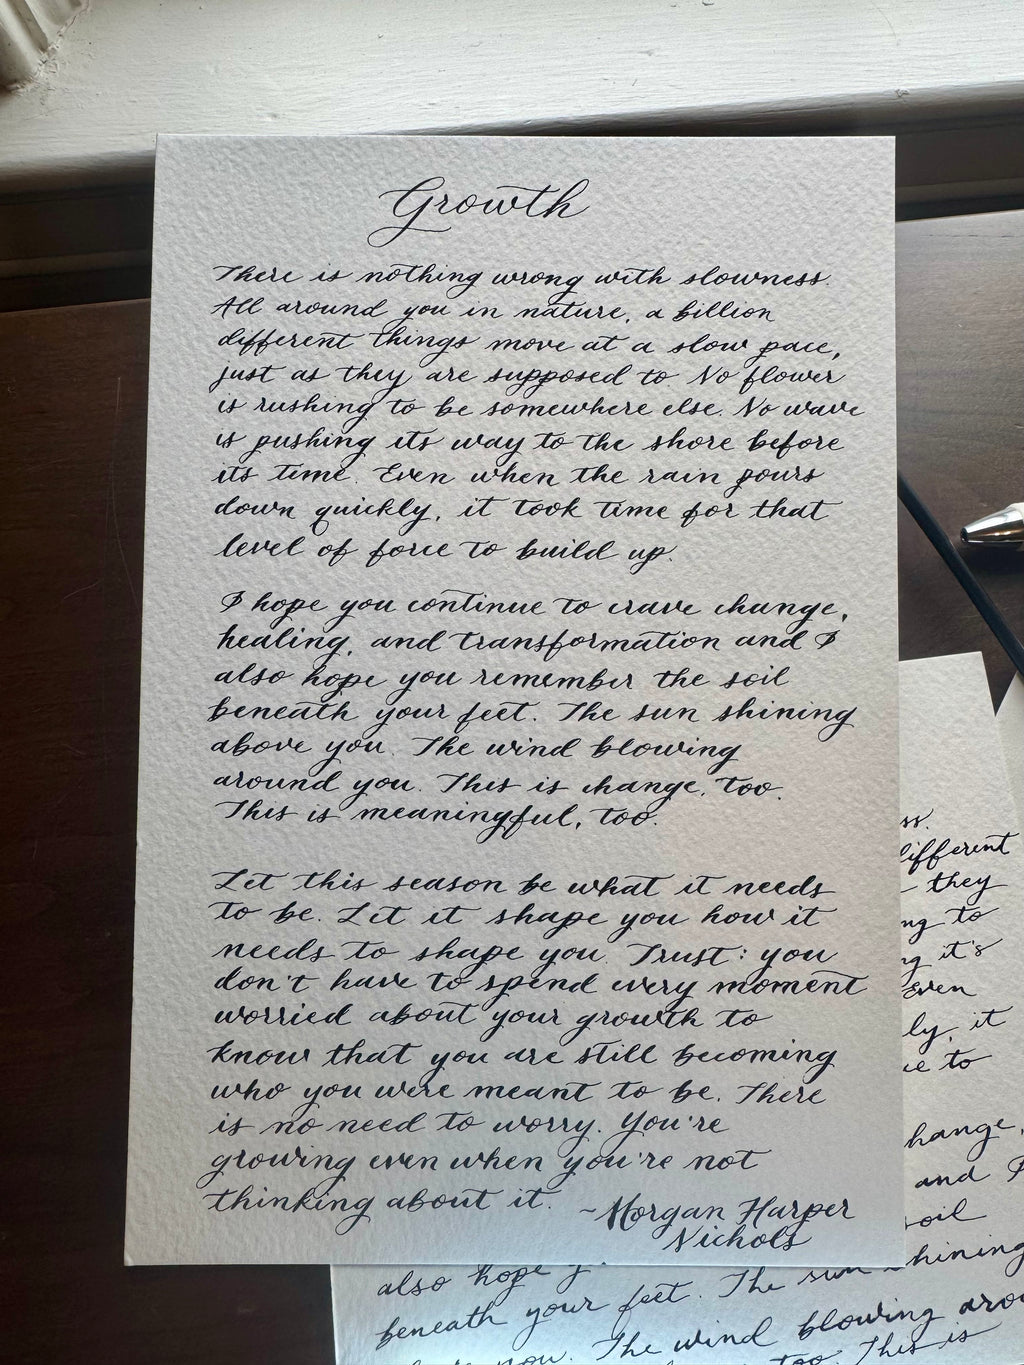 Growth
There is nothing wrong with slowness.
All around you in nature, a billion
different things move at a slow pace,
just as they are supposed to No flower
is rushing to be somewhere else. No wave
is pushing its way to the shore before
its time. Even when the rain pours
down quickly, it took time for that
level of force to build up.
I hope you continue to crave change,
healing, and transformation and I
also hope you remember the soil
beneath your feet. The sun shining
above you. The wind blowing
around you. This is change, too.
This is meaningful, too.
Let this season be what it needs
to be. Let it shape you how it
needs to shape you. Trust: you
don't have to spend every moment
worried about your growth to
know that you are still becoming
who you were meant to be. There
is no need to worry. You're
growing even when you're not
thinking about it.
~Morgan Harper
Nichols
ss.
different
- they
ng to
g it's
Even
ly, it
e to
hange,
and I
soil
also hope y
hining
beneath your feet. The sun
The wind blowing arou
too. This is